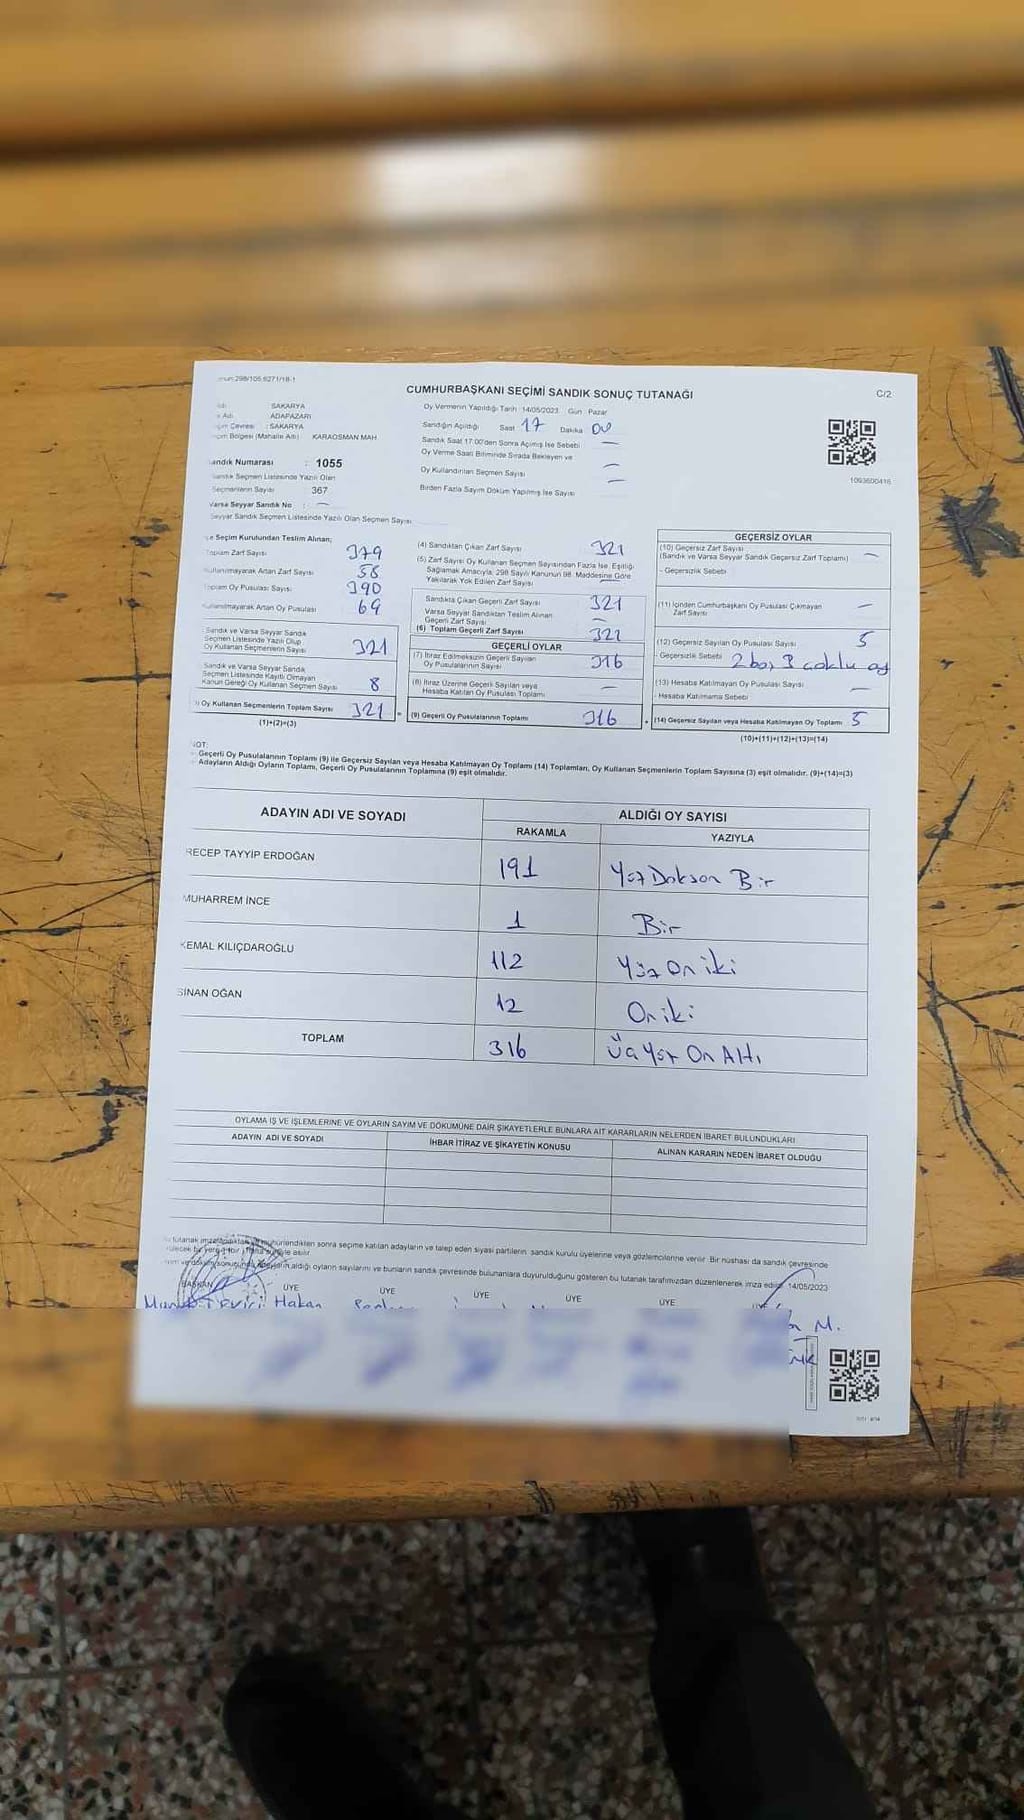 298/105.6271/18-1
CUMHURBAŞKANI SEÇİMİ SANDIK SONUÇ TUTANAĞI
C/2
SAKARYA
Adı ADAPAZARI
Çevresi : SAKARYA
Bölgesi (Mahalle Adı) KARAOSMAN MAH
Sandık Numarası : 1055
Sandık Seçmen Listesinde Yazılı Olan
Seçmenlerin Sayısı 367
Varsa Seyyar Sandık No : —
Seyyar Sandık Seçmen Listesinde Yazılı Olan Seçmen Sayısı
Oy Vermenin Yapıldığı Tarih 14/05/2023 Gün Pazar
Sandığın Açıldığı Saat 17 Dakika 00
Sandık Saat 17.00'den Sonra Açılmış İse Sebebi —
Oy Verme Saati Bitiminde Sırada Bekleyen ve
Oy Kullandırılan Seçmen Sayısı —
Birden Fazla Sayım Döküm Yapılmış İse Sayısı —
1093600416
Seçim Kurulundan Teslim Alınan;
Toplam Zarf Sayısı 379
Kullanılmayarak Artan Zarf Sayısı 58
Toplam Oy Pusulası Sayısı 390
Kullanılmayarak Artan Oy Pusulası 69
Sandık ve Varsa Seyyar Sandık
Seçmen Listesinde Yazılı Olup
Oy Kullanan Seçmenlerin Sayısı 321
Sandık ve Varsa Seyyar Sandık
Seçmen Listesinde Kayıtlı Olmayan
Kanun Gereği Oy Kullanan Seçmen Sayısı 8
Oy Kullanan Seçmenlerin Toplam Sayısı 321
(1)+(2)=(3)
(4) Sandıktan Çıkan Zarf Sayısı 321
(5) Zarf Sayısı Oy Kullanan Seçmen Sayısından Fazla İse, Eşitliği
Sağlamak Amacıyla, 298 Sayılı Kanunun 98. Maddesine Göre
Yakılarak Yok Edilen Zarf Sayısı —
Sandıkta Çıkan Geçerli Zarf Sayısı 321
Varsa Seyyar Sandıktan Teslim Alınan
Geçerli Zarf Sayısı —
(6) Toplam Geçerli Zarf Sayısı 321
GEÇERLİ OYLAR
(7) İtiraz Edilmeksizin Geçerli Sayılan
Oy Pusulalarının Sayısı 316
(8) İtiraz Üzerine Geçerli Sayılan veya
Hesaba Katılan Oy Pusulası Toplamı —
(9) Geçerli Oy Pusulalarının Toplamı 316
GEÇERSİZ OYLAR
(10) Geçersiz Zarf Sayısı
(Sandık ve Varsa Seyyar Sandık Geçersiz Zarf Toplamı) —
- Geçersizlik Sebebi
(11) İçinden Cumhurbaşkanı Oy Pusulası Çıkmayan
Zarf Sayısı —
(12) Geçersiz Sayılan Oy Pusulası Sayısı 5
- Geçersizlik Sebebi 2 boş 3 çoklu oy
(13) Hesaba Katılmayan Oy Pusulası Sayısı —
Hesaba Katılmama Sebebi
(14) Geçersiz Sayılan veya Hesaba Katılmayan Oy Toplamı 5
(10)+(11)+(12)+(13)=(14)
NOT:
Geçerli Oy Pusulalarının Toplamı (9) ile Geçersiz Sayılan veya Hesaba Katılmayan Oy Toplamı (14) Toplamları, Oy Kullanan Seçmenlerin Toplam Sayısına (3) eşit olmalıdır. (9)+(14)=(3)
Adayların Aldığı Oyların Toplamı, Geçerli Oy Pusulalarının Toplamına (9) eşit olmalıdır.
ADAYIN ADI VE SOYADI ALDIĞI OY SAYISI
RAKAMLA YAZIYLA
RECEP TAYYİP ERDOĞAN 191 Yüz Doksan Bir
MUHARREM İNCE 1 Bir
KEMAL KILIÇDAROĞLU 112 Yüz On iki
SİNAN OĞAN 12 On iki
TOPLAM 316 Üç Yüz On Altı
OYLAMA İŞ VE İŞLEMLERİNE VE OYLARIN SAYIM VE DÖKÜMÜNE DAİR ŞİKAYETLERLE BUNLARA AİT KARARLARIN NELERDEN İBARET BULUNDUKLARI
ADAYIN ADI VE SOYADI İHBAR İTİRAZ VE ŞİKAYETİN KONUSU ALINAN KARARIN NEDEN İBARET OLDUĞU
tutanak imzalandıktan mühürlendikten sonra seçime katılan adayların ve talep eden siyasi partilerin sandık kurulu üyelerine veya gözlemcilerine verilir. Bir nüshası da sandık çevresinde
aldığı oyların sayılarını ve bunların sandık çevresinde bulunanlara duyurulduğunu gösteren bu tutanak tarafımızdan düzenlenerek imza edildi. 14/05/2023
BAŞKAN ÜYE ÜYE ÜYE ÜYE ÜYE ÜYE
Hakan
M.